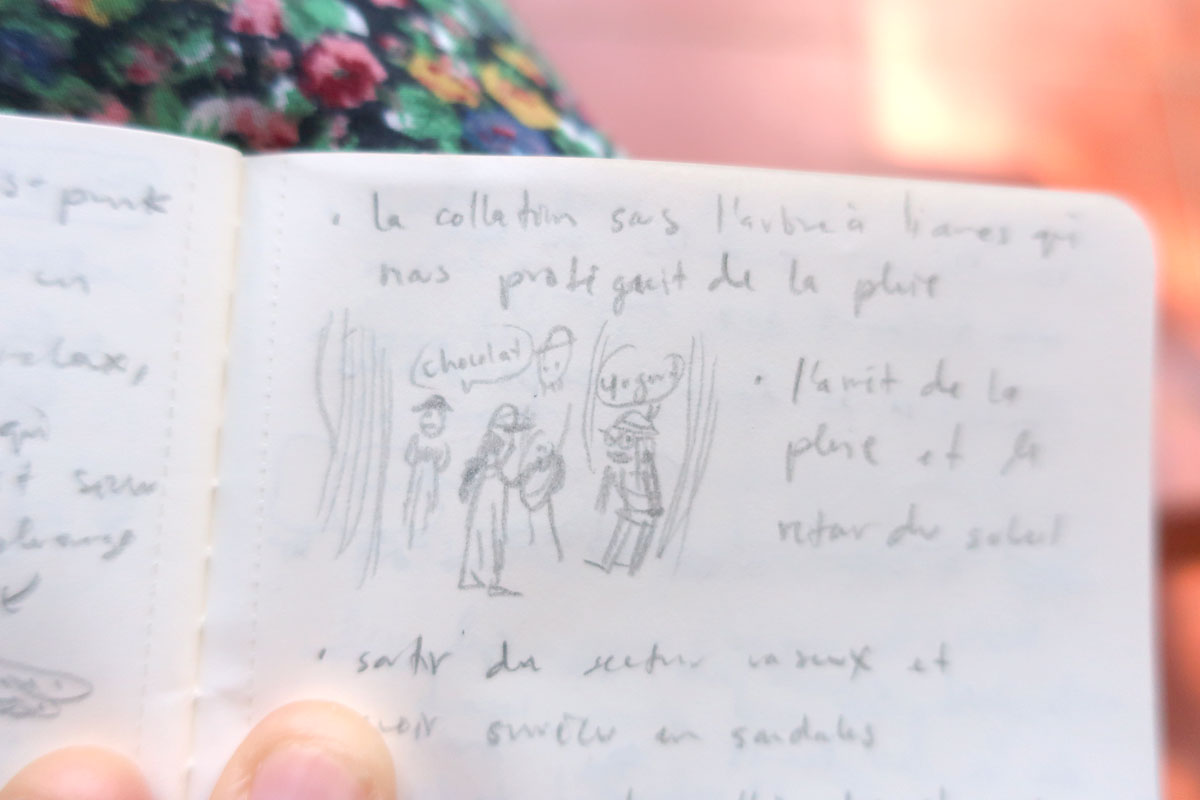 s-punk
un
relax,
qui
• la collation sous l'arbre à lianes qui
nous protégeait de la pluie
chocolat
yogourt
• l'arrêt de la
pluie et le
retour du soleil
• sortir du secteur vaseux et
avoir survécu en sandales